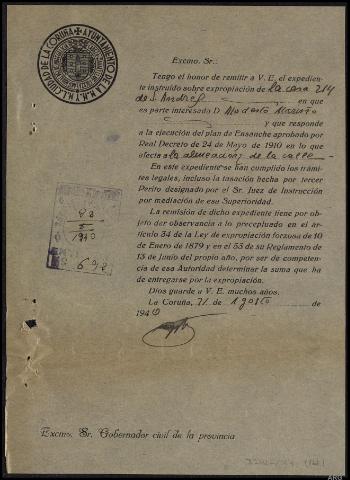 AYUNTAMIENTO DE LA M.N. Y M.L. CIUDAD DE LA CORUÑA
Excmo. Sr.:
Tengo el honor de remitir a V. E. el expedien-
te instruido sobre expropiación de la casa 214
de S. Andrés en que
es parte interesada D. Modesto
y que responde
a la ejecución del plan de Ensanche aprobado por
Real Decreto de 24 de Mayo de 1910 en lo que
afecta a la alineación de la calle
En este expediente se han cumplido los trámi-
tes legales, incluso la tasación hecha por tercer
Perito designado por el Sr. Juez de Instrucción
por mediación de esa Superioridad.
La remisión de dicho expediente tiene por ob-
jeto dar observancia a lo preceptuado en el ar-
tículo 34 de la Ley de expropiación forzosa de 10
de Enero de 1879 y en el 53 de su Reglamento de
13 de Junio del propio año, por ser de competen-
cia de esa Autoridad determinar la suma que ha
de entregarse por la expropiación.
Dios guarde a V. E. muchos años.
La Coruña, 21 de Agosto de
1940
Excmo. Sr. Gobernador civil de la provincia